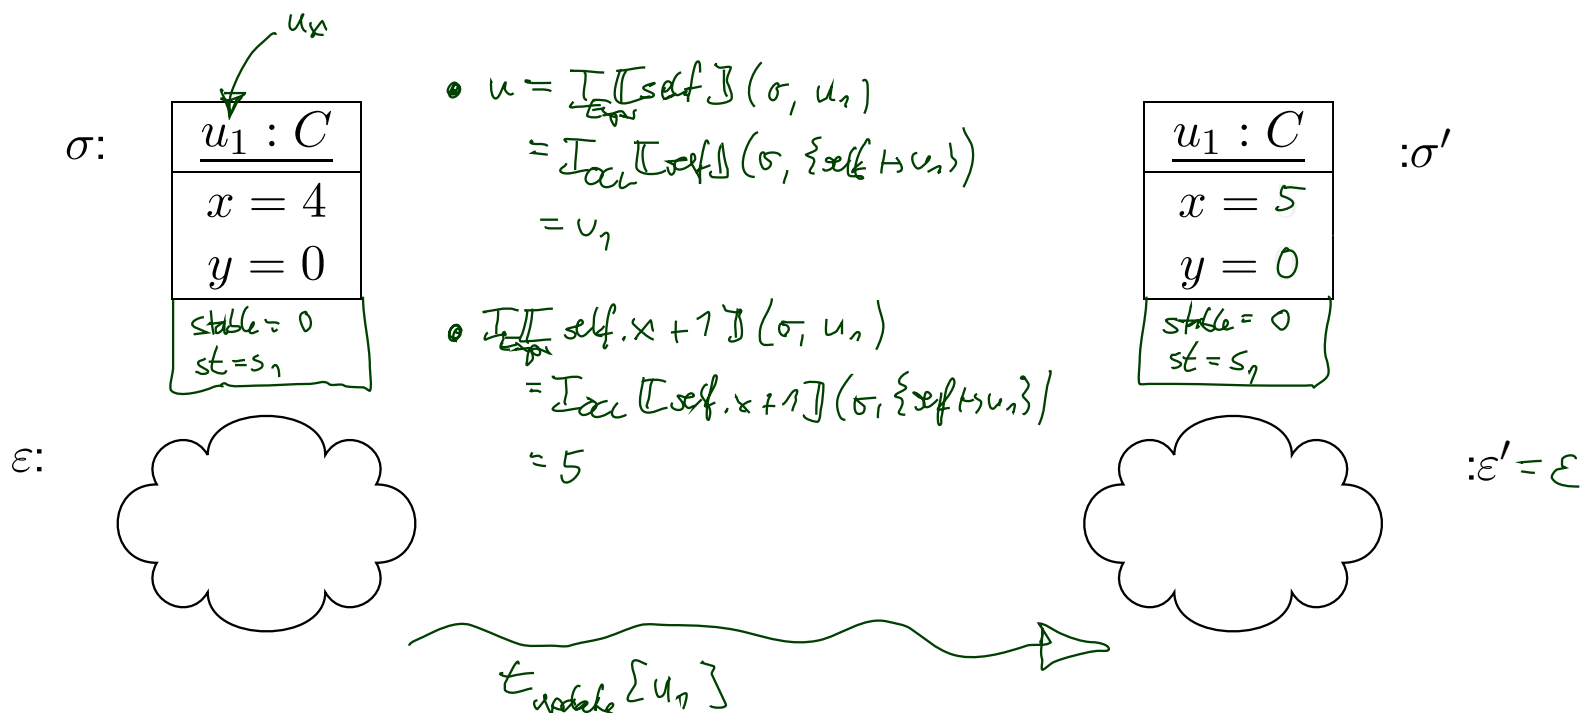 uₓ
σ:
u₁ : C
x = 4
y = 0
stable = 0
st = s₁
ε:
• u = I_Expr⟦self⟧(σ, u₁)
= I_OCL⟦self⟧(σ, {self ↦ u₁})
= u₁
• I_Expr⟦self.x + 1⟧(σ, u₁)
= I_OCL⟦self.x + 1⟧(σ, {self ↦ u₁})
= 5
u₁ : C
:σ′
x = 5
y = 0
stable = 0
st = s₁
:ε′ = ε
t_update[u₁]